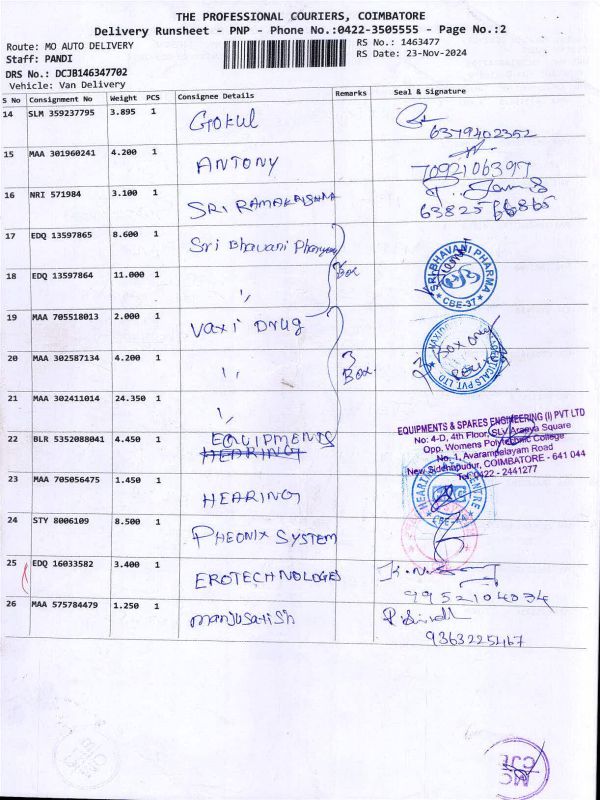 THE PROFESSIONAL COURIERS, COIMBATORE
Delivery Runsheet - PNP - Phone No.:0422-3505555 - Page No.:2
Route: MO AUTO DELIVERY
RS No.: 1463477
Staff: PANDI
RS Date: 23-Nov-2024
DRS No.: DCJB146347702
Vehicle: Van Delivery
S No Consignment No Weight PCS Consignee Details Remarks Seal & Signature
14 SLM 359237795 3.895 1 Gokul
6379402352
15 MAA 301960241 4.200 1 ANTONY
7092106397
16 NRI 571984 3.100 1 SRI RAMAKRISHNA
63825 66865
17 EDQ 13597865 8.600 1 Sri Bhavani Pharma
SRI BHAVANI PHARMA
CBE-37
18 EDQ 13597864 11.000 1 " Box
19 MAA 705518013 2.000 1 Vaxi DRUG
Box only
20 MAA 302587134 4.200 1 " 3 Box.
21 MAA 302411014 24.350 1 "
EQUIPMENTS & SPARES ENGINEERING (I) PVT LTD
No: 4-D, 4th Floor, SLV Aranya Square
Opp. Womens Polytechnic College
No. 1, Avarampalayam Road
New Siddhapudur, COIMBATORE - 641 044
Tel: 0422 - 2441277
22 BLR 5352088041 4.450 1 EQUIPMENTS
HEARING
23 MAA 705056475 1.450 1 HEARING
24 STY 8006109 8.500 1 PHEONIX SYSTEM
25 EDQ 16033582 3.400 1 EROTECHNOLOGES
9952104034
26 MAA 575784479 1.250 1 manjusatish
9363225467